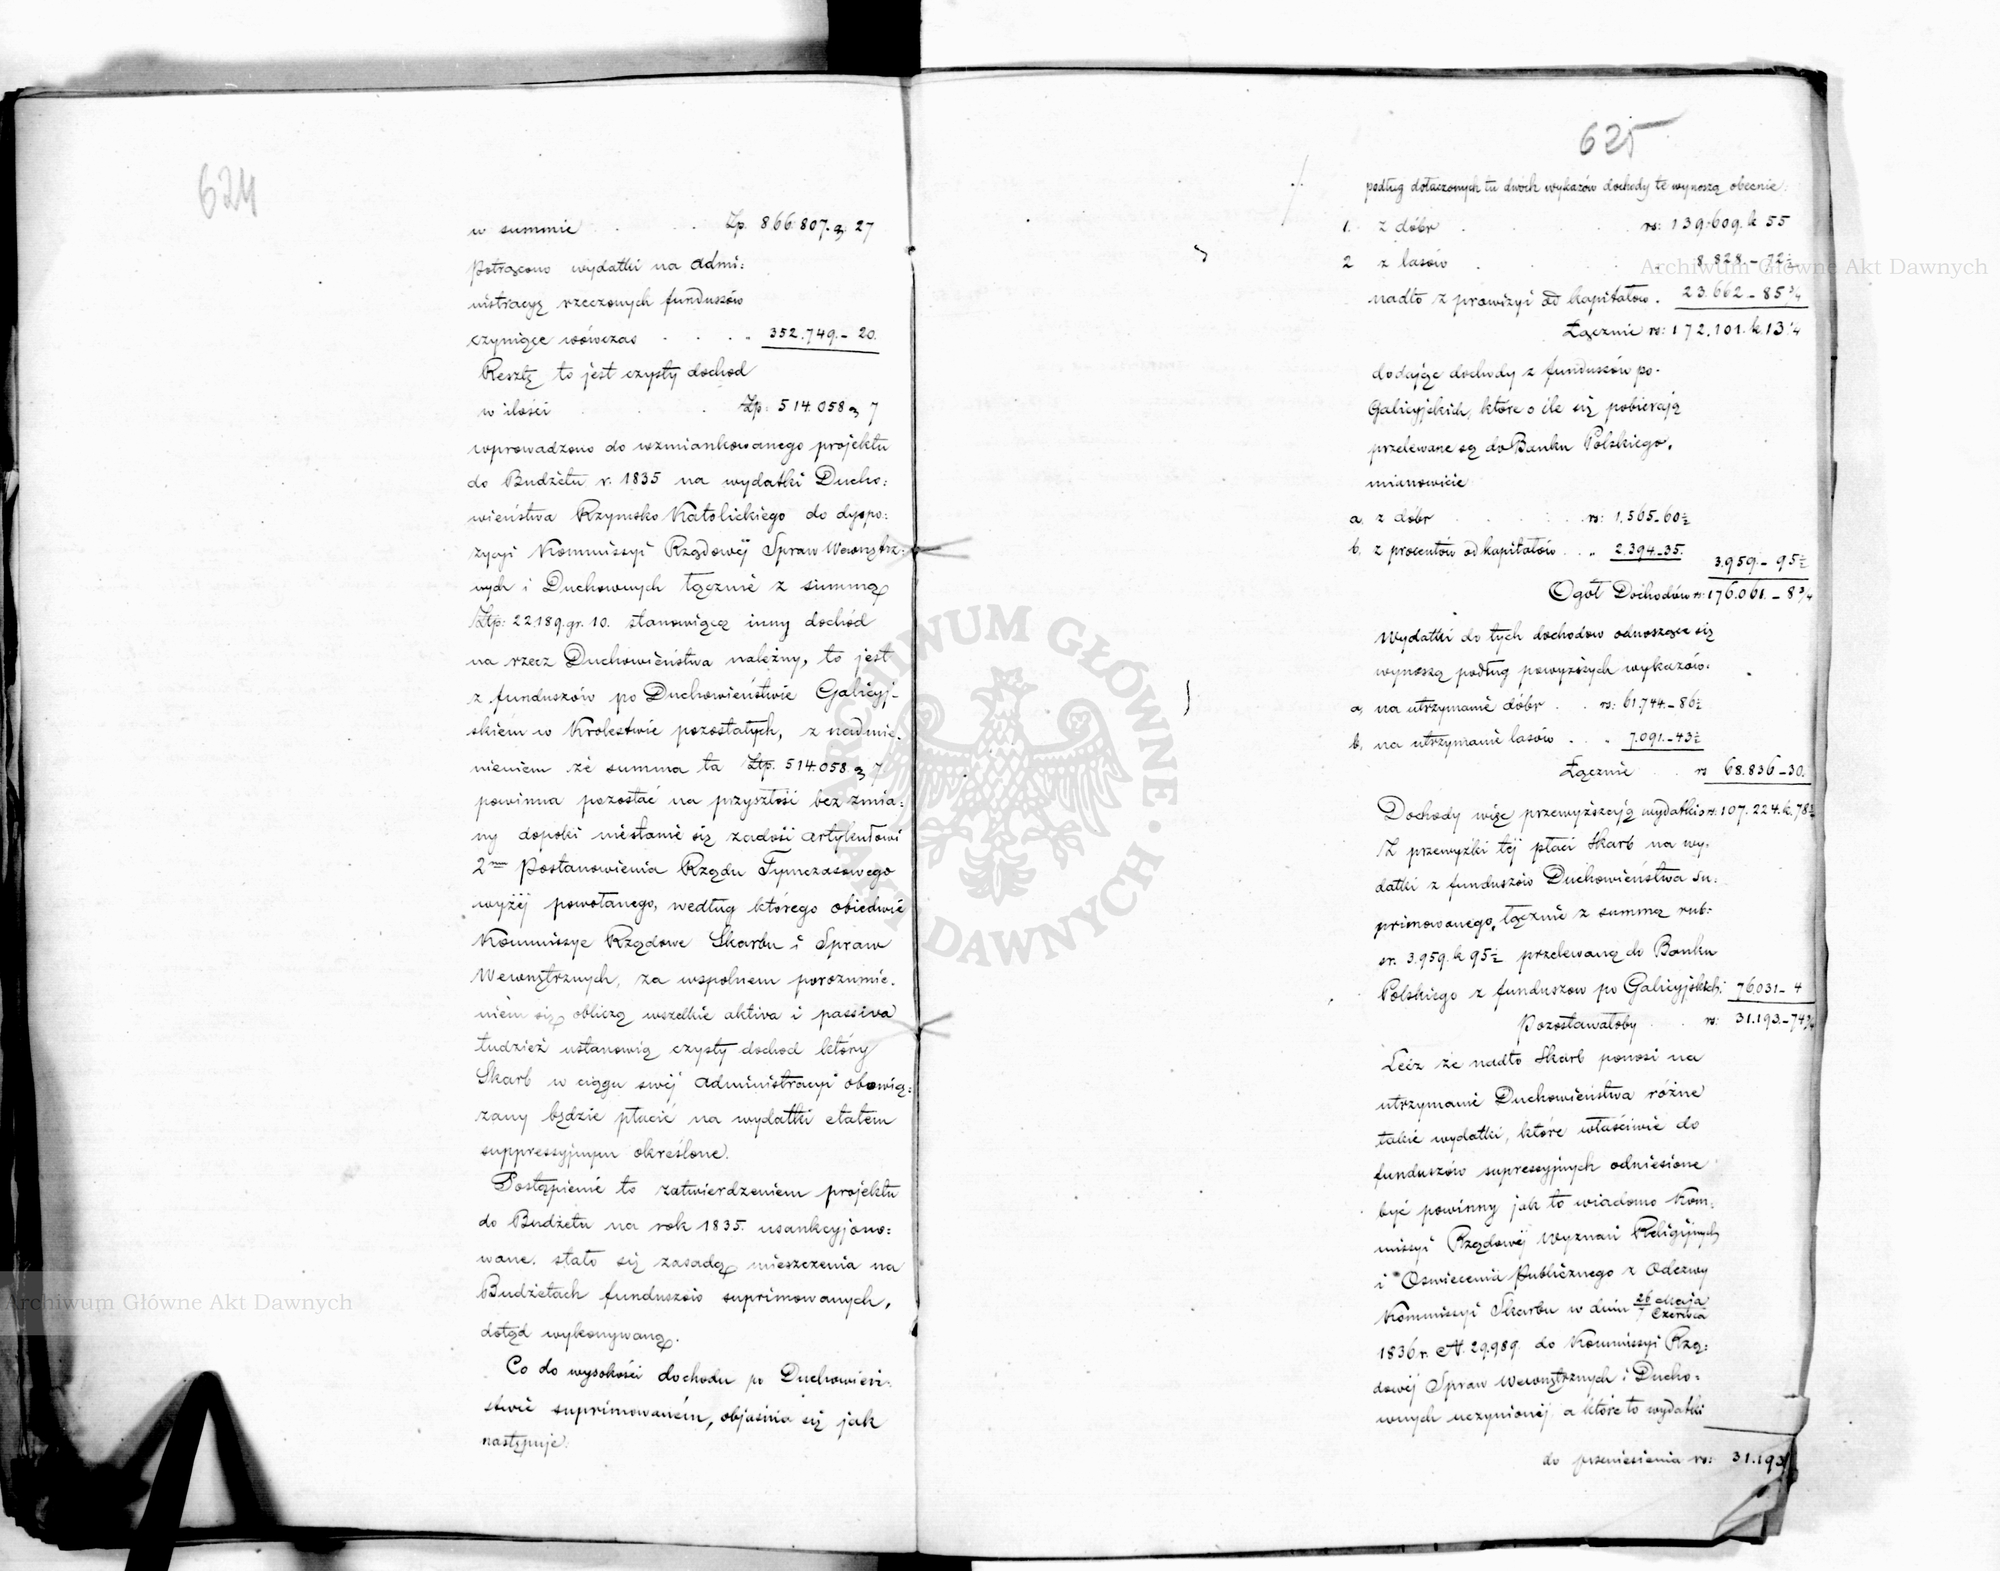 624
w summie . . . Zp. 866.807. g. 27
Potrącono wydatki na admi:
nistracyę rzeczonych funduszów
czyniące wówczas . . . „ 352.749.– 20.
Resztę to jest czysty dochod
w ilości . . Zp: 514.058 g 7
wprowadzono do wzmiankowanego projektu
do Budżetu r. 1835 na wydatki Ducho:
wieństwa Rzymsko Katolickiego do dyspo:
zycyi Kommissyi Rządowéj Spraw Wewnętrz:
nych i Duchownych łącznie z summą
Złp: 22.189. gr. 10. stanowiącą inny dochód
na rzecz Duchowieństwa należny, to jest
z funduszów po Duchowieństwie Galicyj-
skiém w Krolestwie pozostałych, z nadmie-
nieniem że summa ta Złp. 514.058 g 7
powinna pozostać na przyszłość bez zmia:
ny dopoki niestanie się zadość artykułowi
2mu Postanowienia Rządu Tymczasowego
wyżéj powołanego, według którego obiedwie
Kommissye Rządowe Skarbu i Spraw
Wewnętrznych, za wspolnem porozumie-
niem się obliczą wszelkie aktiva i passiva
tudzież ustanowią czysty dochod który
Skarb w ciągu swéj administracyi obowią:
zany będzie płacić na wydatki etatem
suppressyjnym określone.
Postąpienie to zatwierdzeniem projektu
do Budżetu na rok 1835. usankcyjono:
wane. stało się zasadą mieszczenia na
Budżetach funduszów suprimowanych,
dotąd wykonywaną.
Co do wysokości dochodu po Duchowień:
stwie suprimowaném, objaśnia się jak
następuje:
625
podług dołączonych tu dwóch wykazów dochody te wynoszą obecnie:
1. z dóbr . . . rs: 139.609. k 55
2 z lasów . . . 8.828.– 72½
nadto z prowizyi od kapitałów . 23.662 – 85¾
Łącznie rs: 172.101. k 13¼
dodając dochody z funduszów po-
Galicyjskich, które o ile się pobierają
przelewane są do Banku Polskiego,
mianowicie
a. z dóbr . . . rs: 1.565–60½
b. z procentów od kapitałów . . „ 2.394–35.
3.959.– 95½
Ogół Dochodów rs: 176.061. – 8¾
Wydatki do tych dochodow odnoszące się
wynoszą podług powyższych wykazów:
a, na utrzymanie dóbr . . rs: 61.744.– 86½
b, na utrzymanie lasów . . „ 7.091.–43½
Łącznie . . rs 68.836–30.
Dochody więc przewyższają wydatki o rs. 107.224. k. 78¾
Z przewyżki téj płaci Skarb na wy-
datki z funduszów Duchowieństwa su:
primowanego, łącznie z summą rub:
sr. 3.959. k 95½ przelewaną do Banku
Polskiego z funduszow po Galicyjskich: 76.031– 4
Pozostawałoby . . rs: 31.193.–74¾
Lecz że nadto Skarb ponosi na
utrzymanie Duchowieństwa różne
takie wydatki, które właściwie do
funduszów supressyjnych odniesione
być powinny jak to wiadomo Kom-
missyi Rządowéj Wyznań Religijnych
i Oświecenia Publicznego z Odezwy
Kommissyi Skarbu w dniu 26 Maja/7 Czerwca
1836 r. N. 29.989. do Kommissyi Rzą:
dowéj Spraw Wewnętrznych i Ducho-
wnych uczynionéj a które to wydatki
do przeniesienia rs: 31.193
Archiwum Główne Akt Dawnych
Archiwum Główne Akt Dawnych
ARCHIWUM GŁÓWNE AKT DAWNYCH